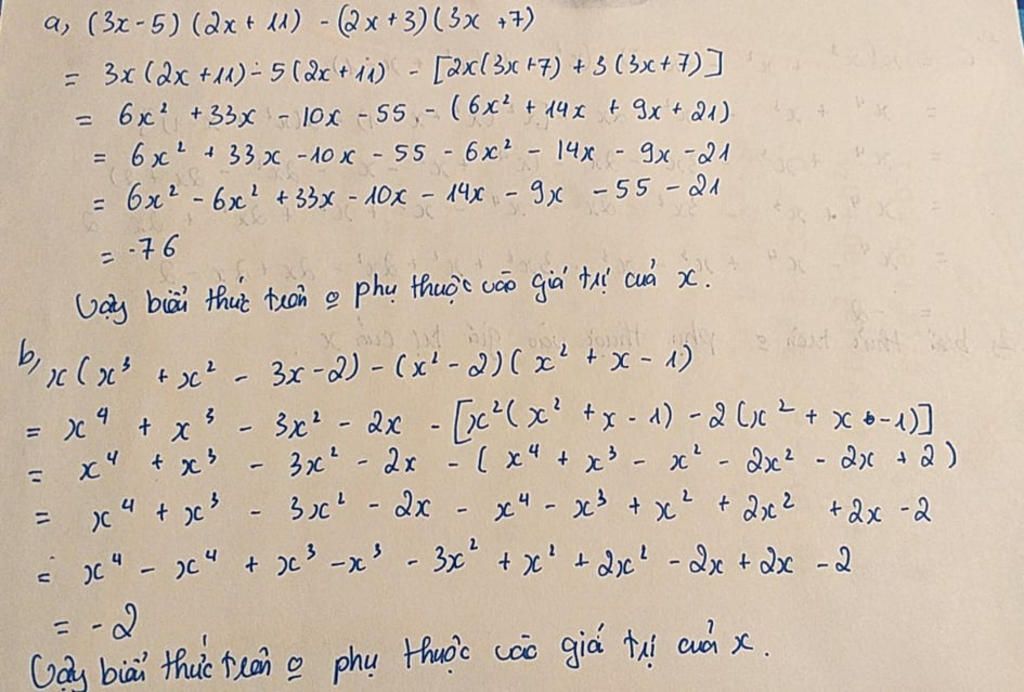 a, (3x-5) (2x + 11) - (2x+3)(3x +7)
= 3x(2x +11) - 5(2x+11) - [2x(3x+7) + 3(3x+7)]
= 6x² + 33x - 10x - 55 - (6x² + 14x + 9x + 21)
= 6x² + 33x -10x - 55 - 6x² - 14x - 9x -21
= 6x² - 6x² + 33x - 10x - 14x - 9x - 55 - 21
= -76
Vậy biểu thức trên o phụ thuộc vào giá trị của x.
b, x(x³ + x² - 3x -2) - (x² - 2)(x² + x - 1)
= x⁴ + x³ - 3x² - 2x - [x²(x² + x - 1) - 2(x² + x -1)]
= x⁴ + x³ - 3x² - 2x - (x⁴ + x³ - x² - 2x² - 2x + 2)
= x⁴ + x³ - 3x² - 2x - x⁴ - x³ + x² + 2x² + 2x - 2
= x⁴ - x⁴ + x³ - x³ - 3x² + x² + 2x² - 2x + 2x - 2
= -2
Vậy biểu thức trên o phụ thuộc vào giá trị của x.